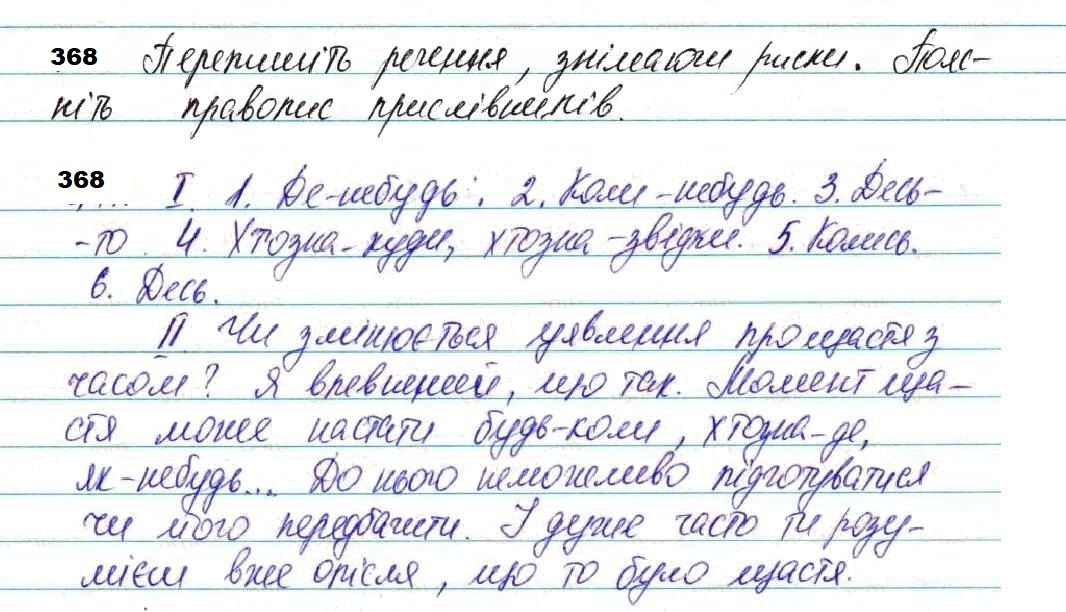 368 Перепишіть речення, знімаючи риски. Пояс-
ніть правопис прислівників.
368 I. 1. Де-небудь. 2. Коли-небудь. 3. Десь-
-то. 4. Хтозна-куди, хтозна-звідки. 5. Колись.
6. Десь.
II Чи змінюється уявлення про щастя з
часом? Я впевнений, що так. Момент ща-
стя може настати будь-коли, хтозна-де,
як-небудь... До нього неможливо підготуватися
чи його передбачити. І дуже часто ти розу-
мієш вже опісля, що то було щастя.